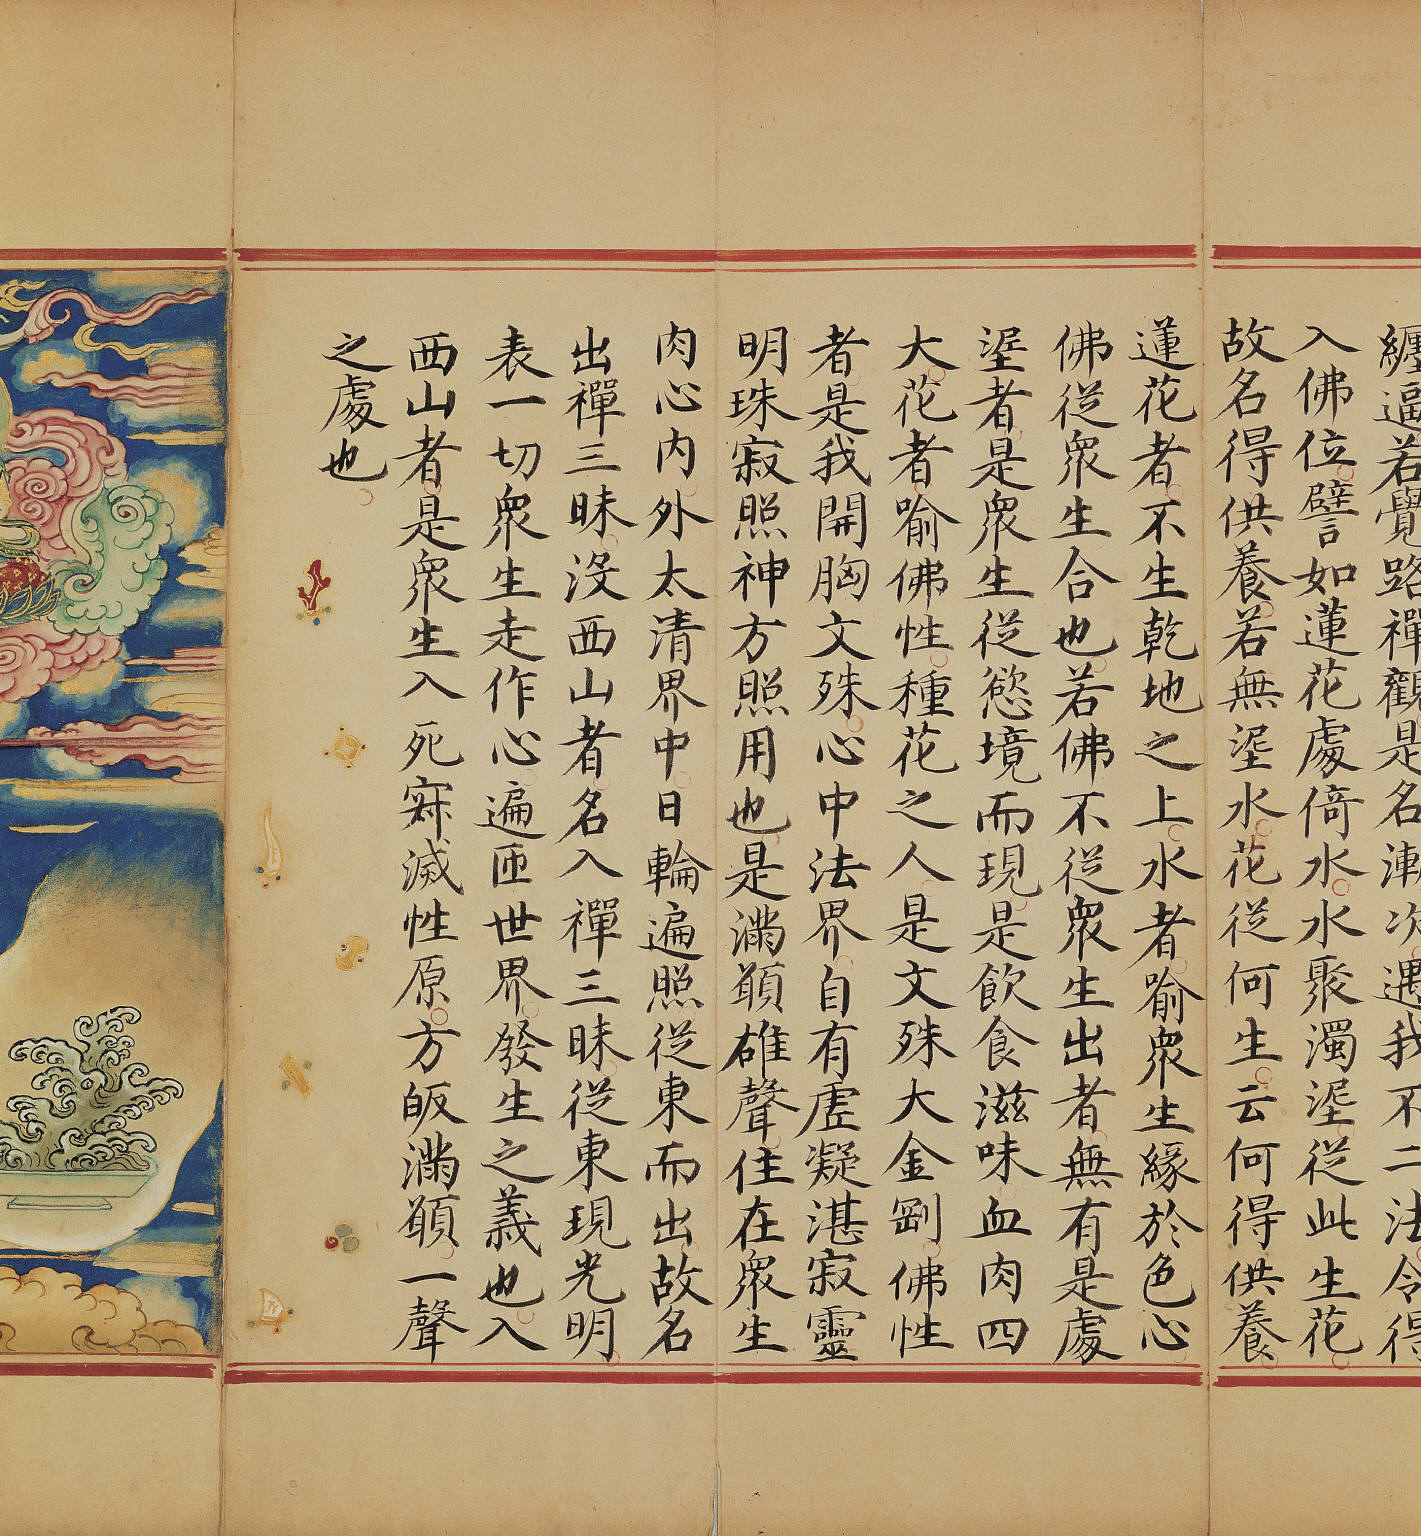 纏逼若覺路禪觀是名漸次遇我不二法令得
入佛位譬如蓮花處倚水水聚濁埿從此生花
故名得供養若無埿水花從何生云何得供養
蓮花者不生乾地之上水者喻衆生緣於色心
佛從衆生合也若佛不從衆生出者無有是處
埿者是衆生從慾境而現是飲食滋味血肉四
大花者喻佛性種花之人是文殊大金剛佛性
者是我開胸文殊心中法界自有虗凝湛寂靈
明珠寂照神方照用也是滿願雄聲住在衆生
肉心內外太清界中日輪遍照從東而出故名
出禪三昧沒西山者名入禪三昧從東現光明
表一切衆生走作心遍匝世界發生之義也入
西山者是衆生入死寂滅性原方皈滿願一聲
之處也